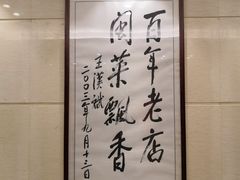 百年老店
闽菜飘香
王汉斌
二〇〇三年九月十三日